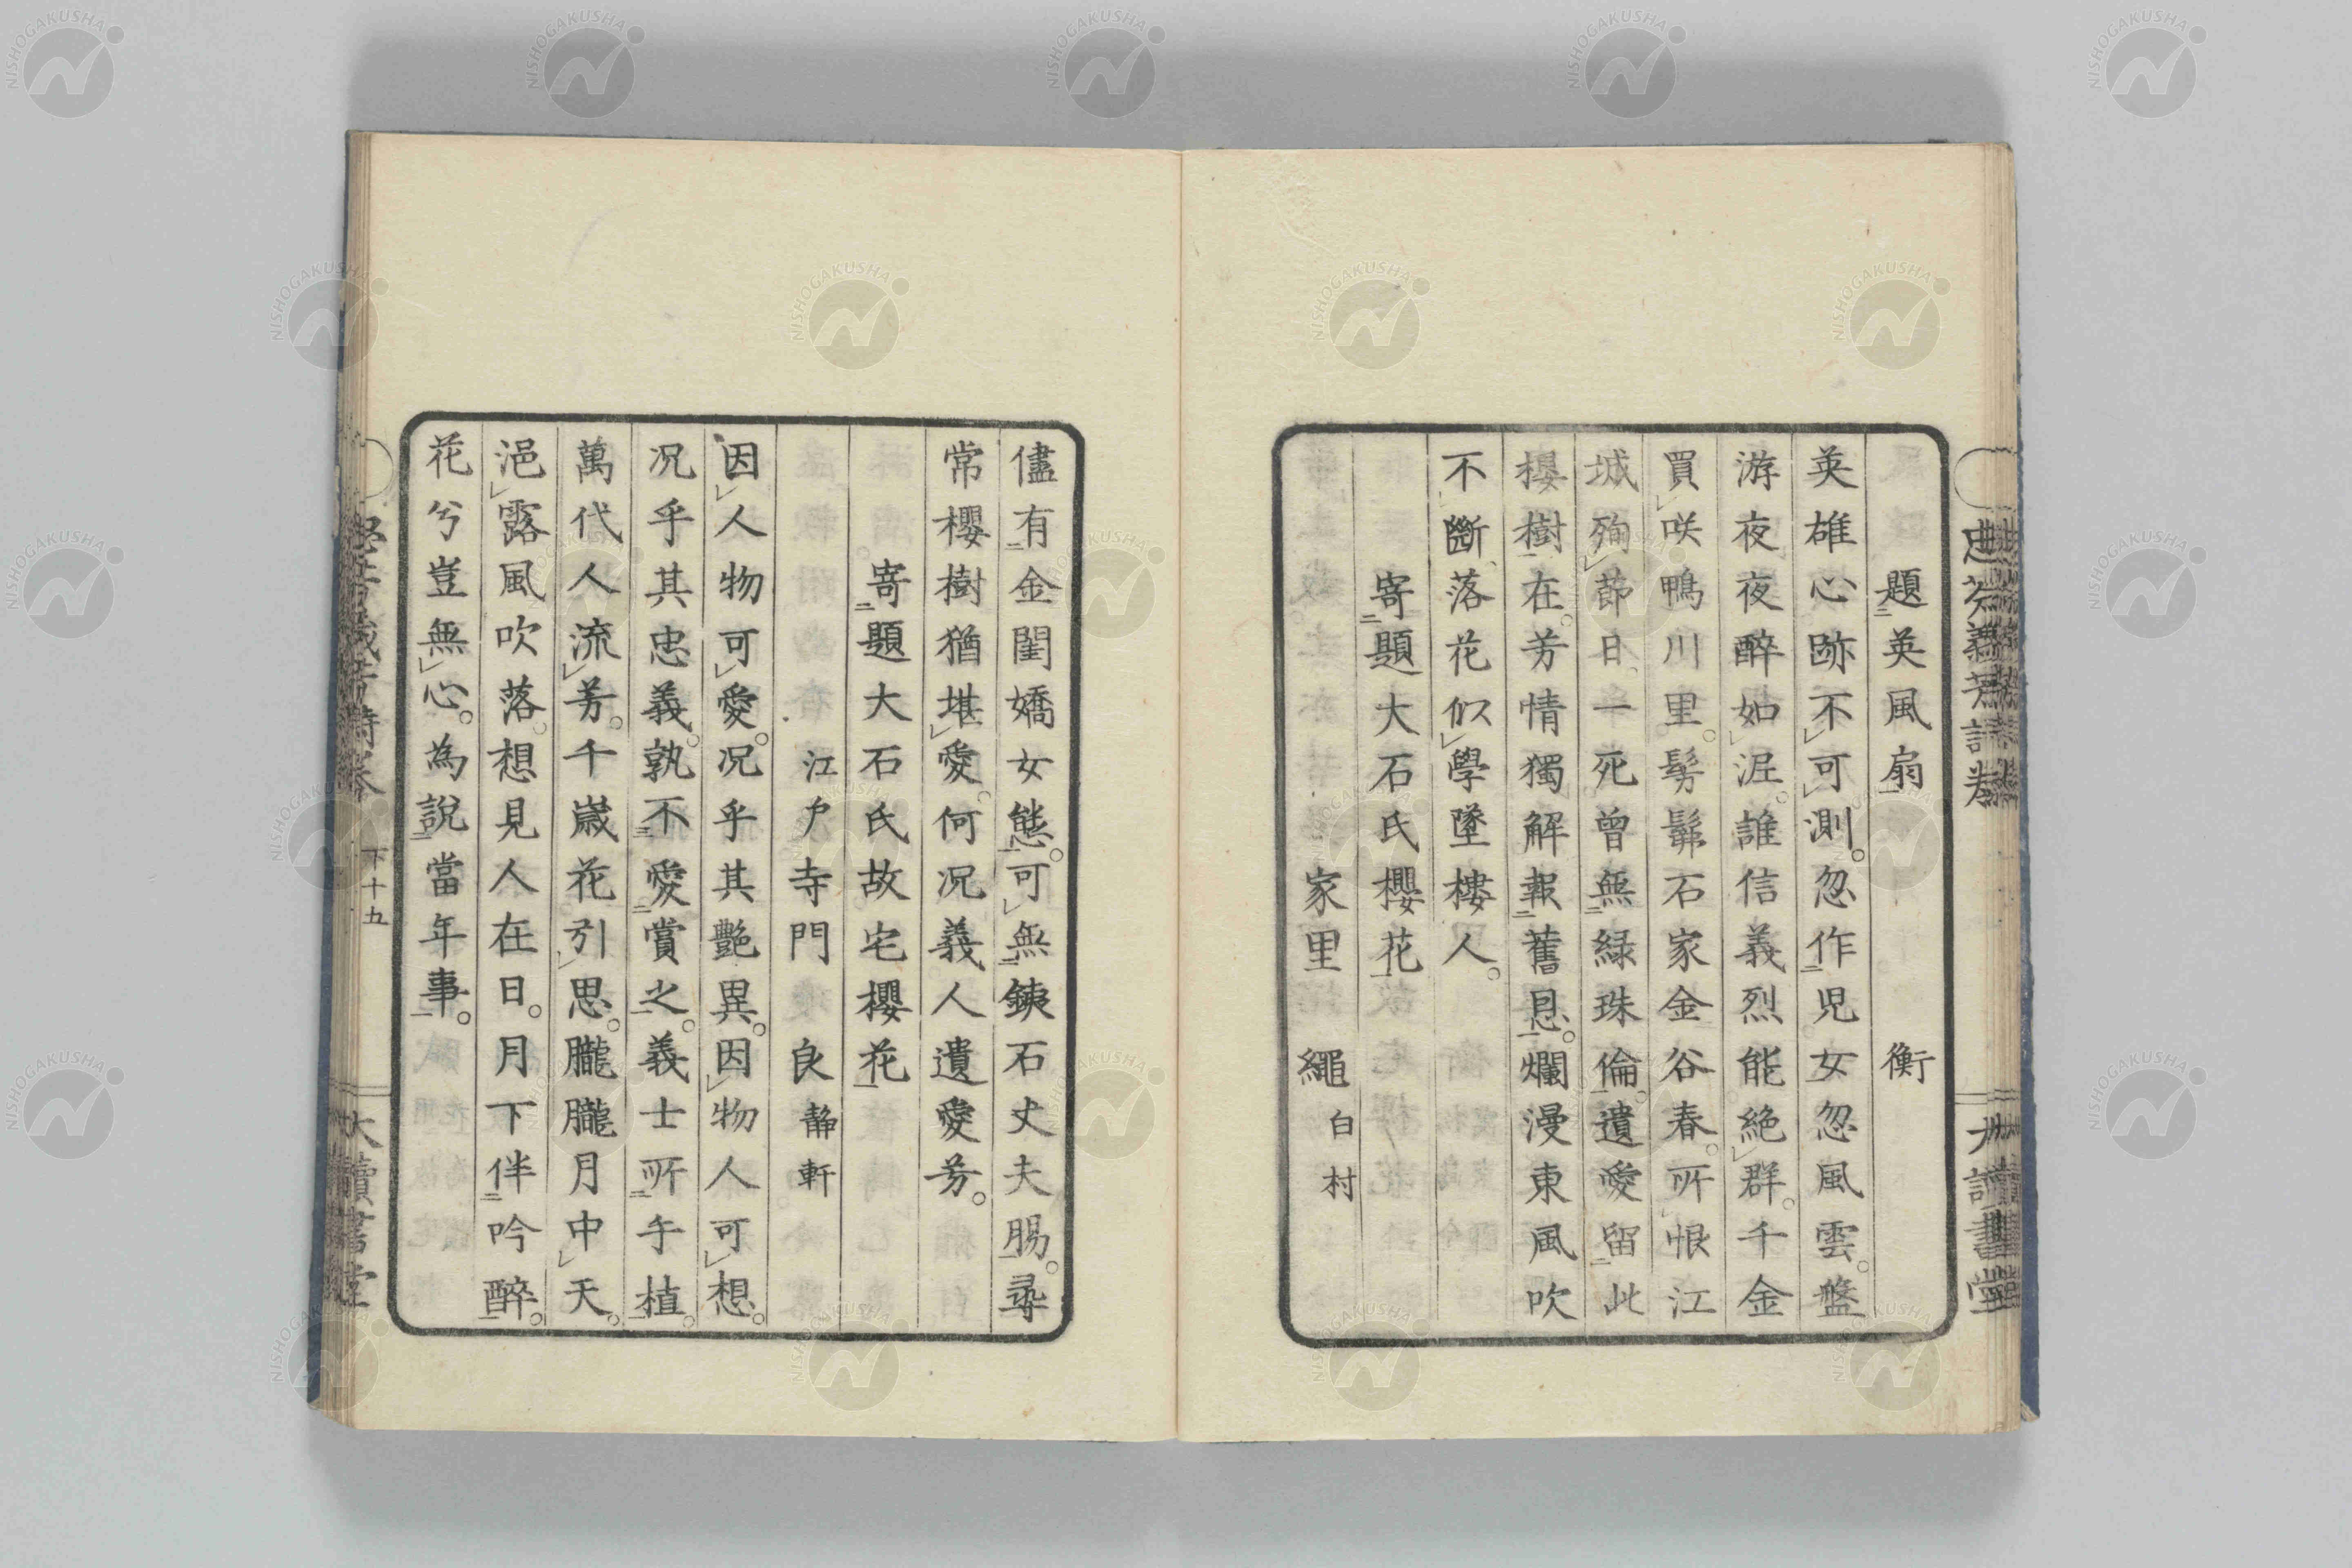 題英風扇 衡
英雄心跡不可測。忽作児女忽風雲。盤
游夜夜醉如泥。誰信義烈能絶群。千金
買咲鴨川里。髣髴石家金谷春。所恨江
城殉節日、一死曾無緑珠倫。遺愛留此
櫻樹在。芳情獨解報舊恩。爛漫東風吹
不斷、落花似學墜樓人。
寄題大石氏櫻花
家里 繩 白村
儘有金閨嬌女態。可無銕石丈夫腸。尋
常櫻樹猶堪愛。何况義人遺愛芳。
寄題大石氏故宅櫻花
江戸 寺門 良 静軒
因人物可愛。况乎其艷異。因物人可想。
况乎其忠義。孰不愛賞之。義士所手植。
萬代人流芳。千歳花引思。朧朧月中天。
浥露風吹落。想見人在日。月下伴吟醉。
花兮豈無心。為説當年事。
下十五
大讀書堂
忠芬義芳詩巻
大讀書堂
NISHOGAKUSHA